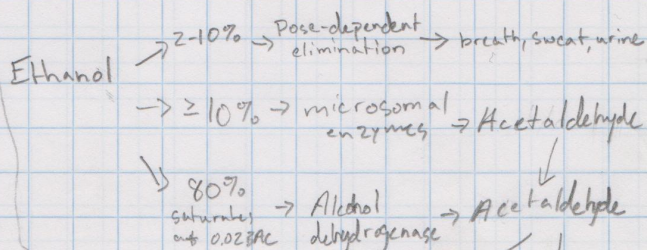 2-10% → Dose-dependent
elimination → breath, sweat, urine
Ethanol
→ ≥10% → microsomal
enzymes → Acetaldehyde
80%
saturates
at 0.02BAC
→ Alcohol
dehydrogenase
→ Acetaldehyde